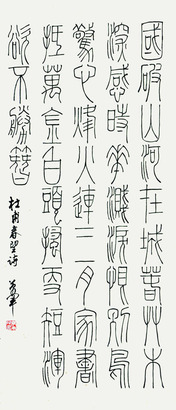 國破山河在城春草木
深感時華濺淚恨別鳥
驚心烽火連三月家書
抵萬金白頭搔更短渾
欲不勝簪
杜甫春望诗